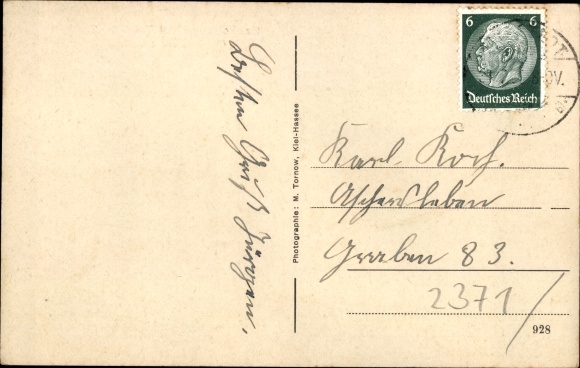 Besten Gruß Jürgen.
Photographie: M. Tornow, Kiel-Hassee
6 6
Deutsches Reich
Karl Koch.
Aschersleben
Graben 83.
2371/
928